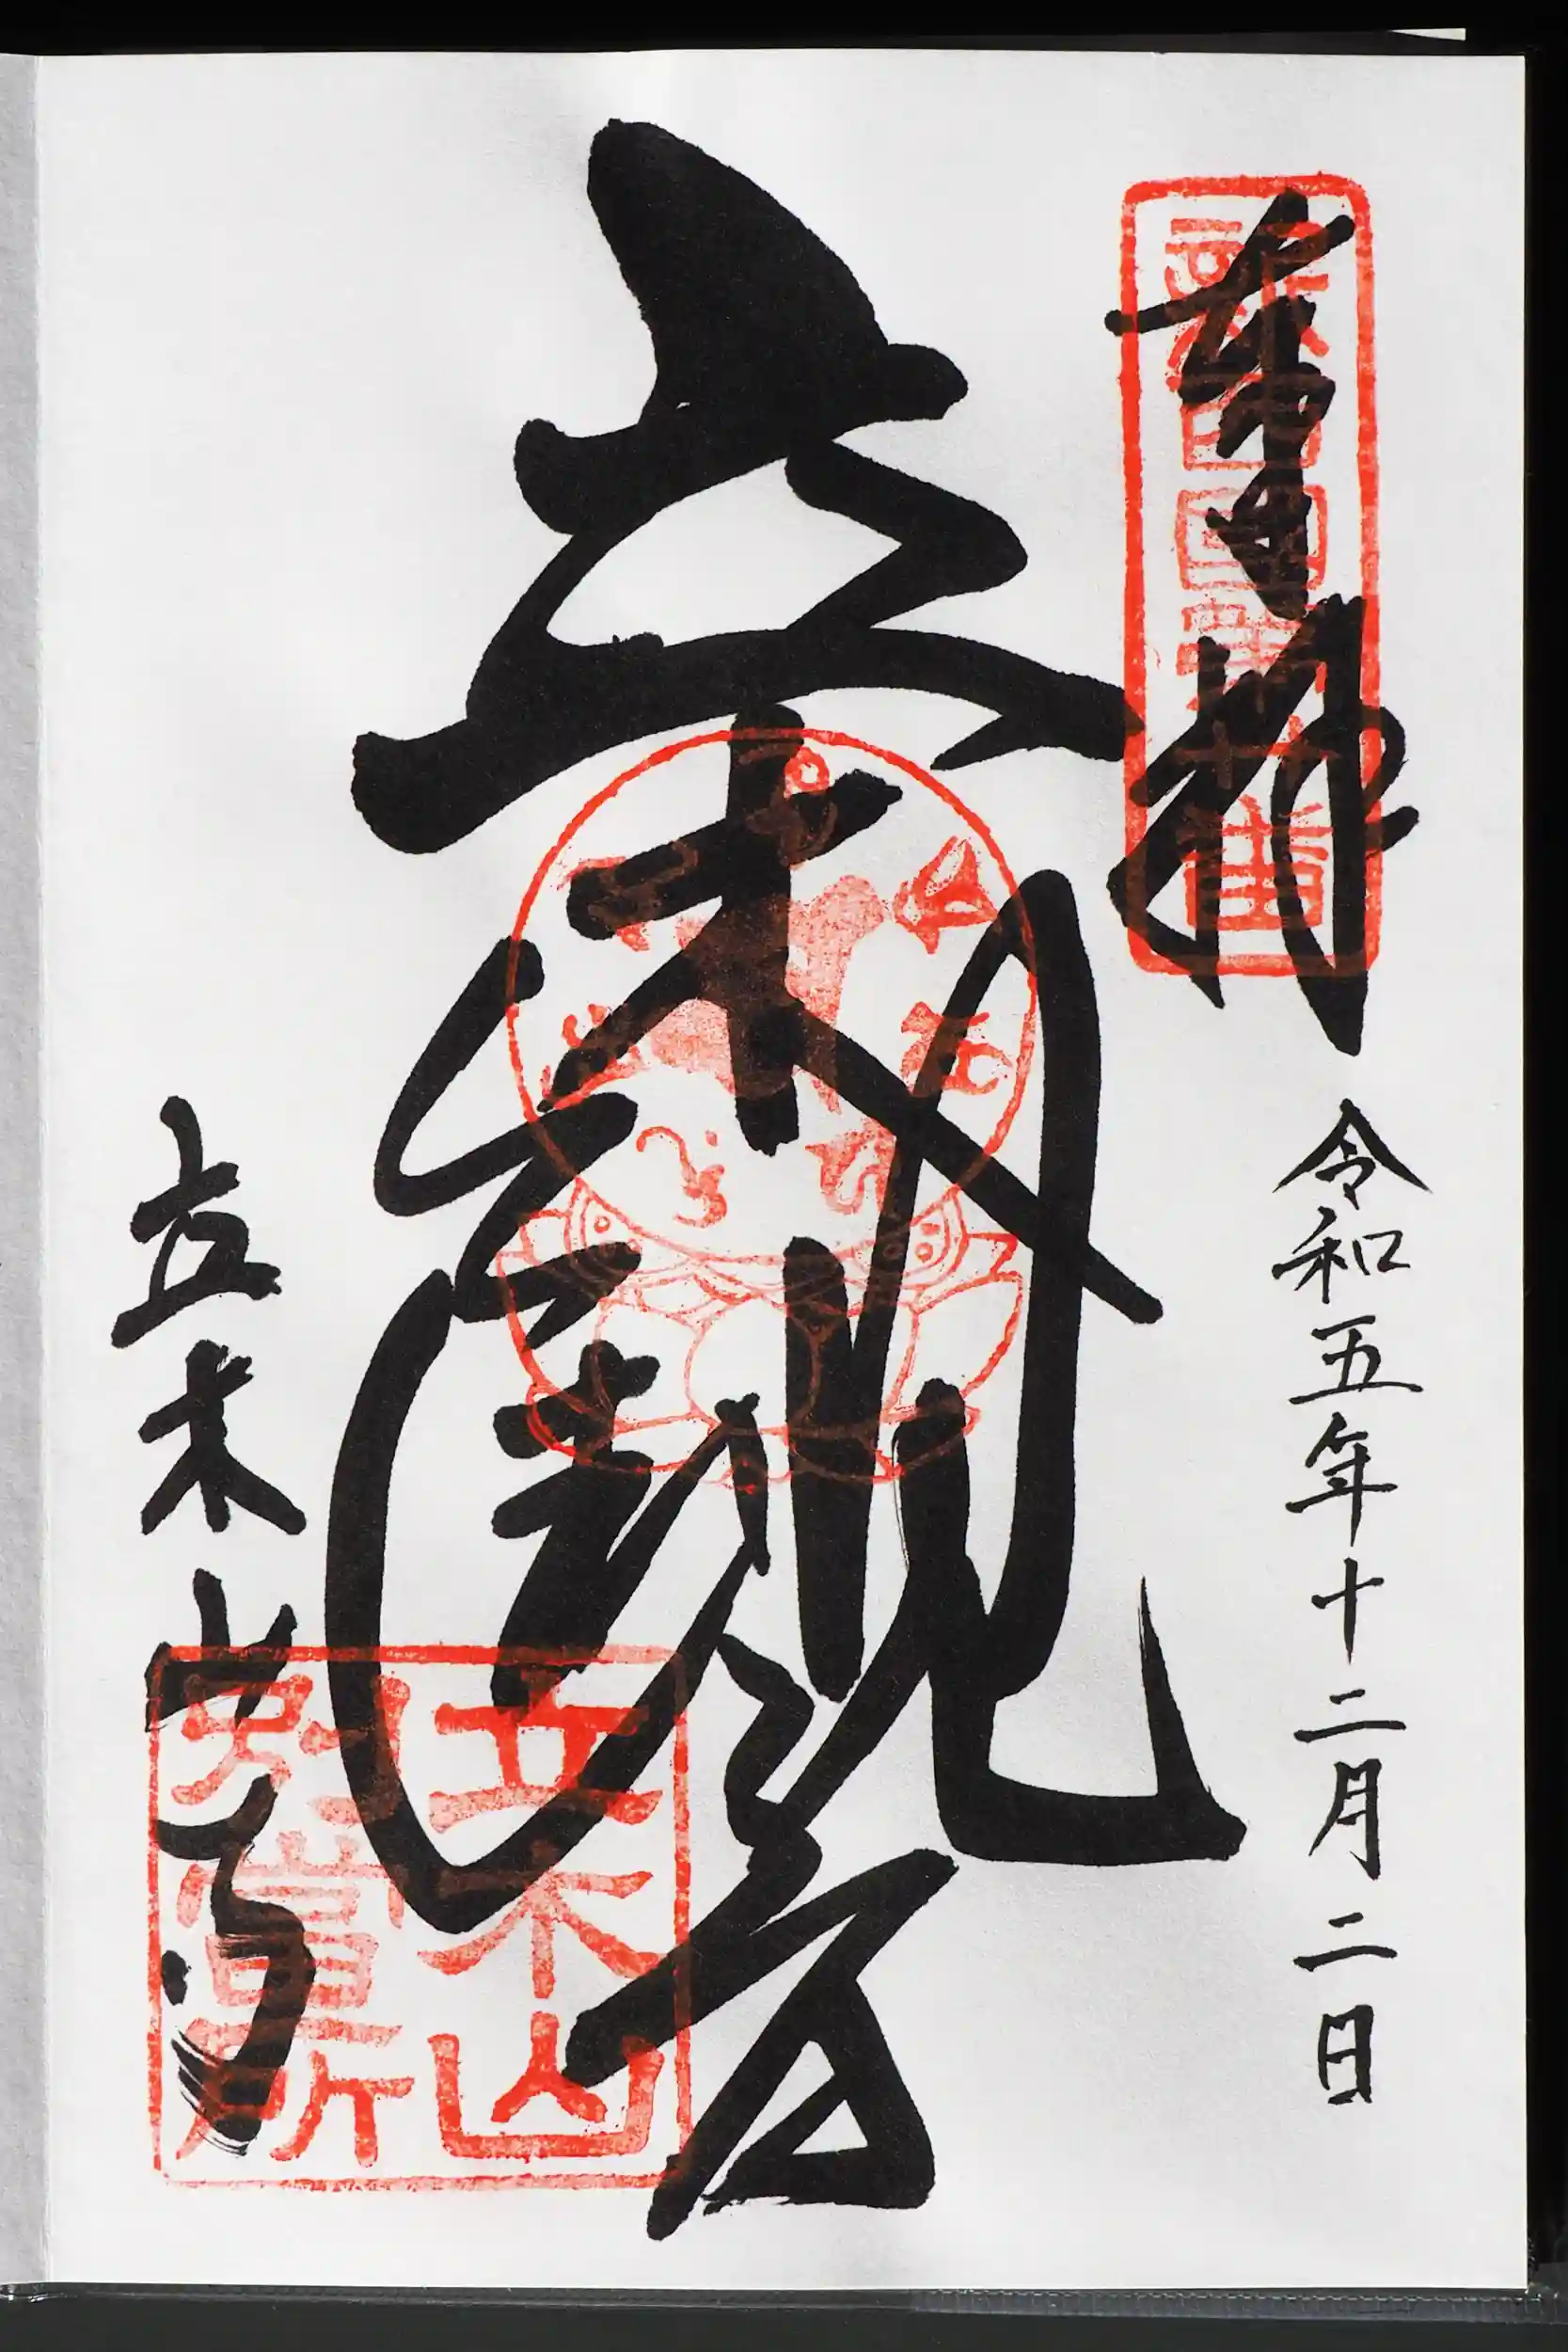 奉拝
令和五年十二月二日
立木観音
立木山寺
立木山
別當所